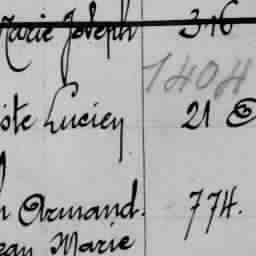 Marie Joseph 346
1404
ste Lucien 21
n Armand. 774.
ean Marie